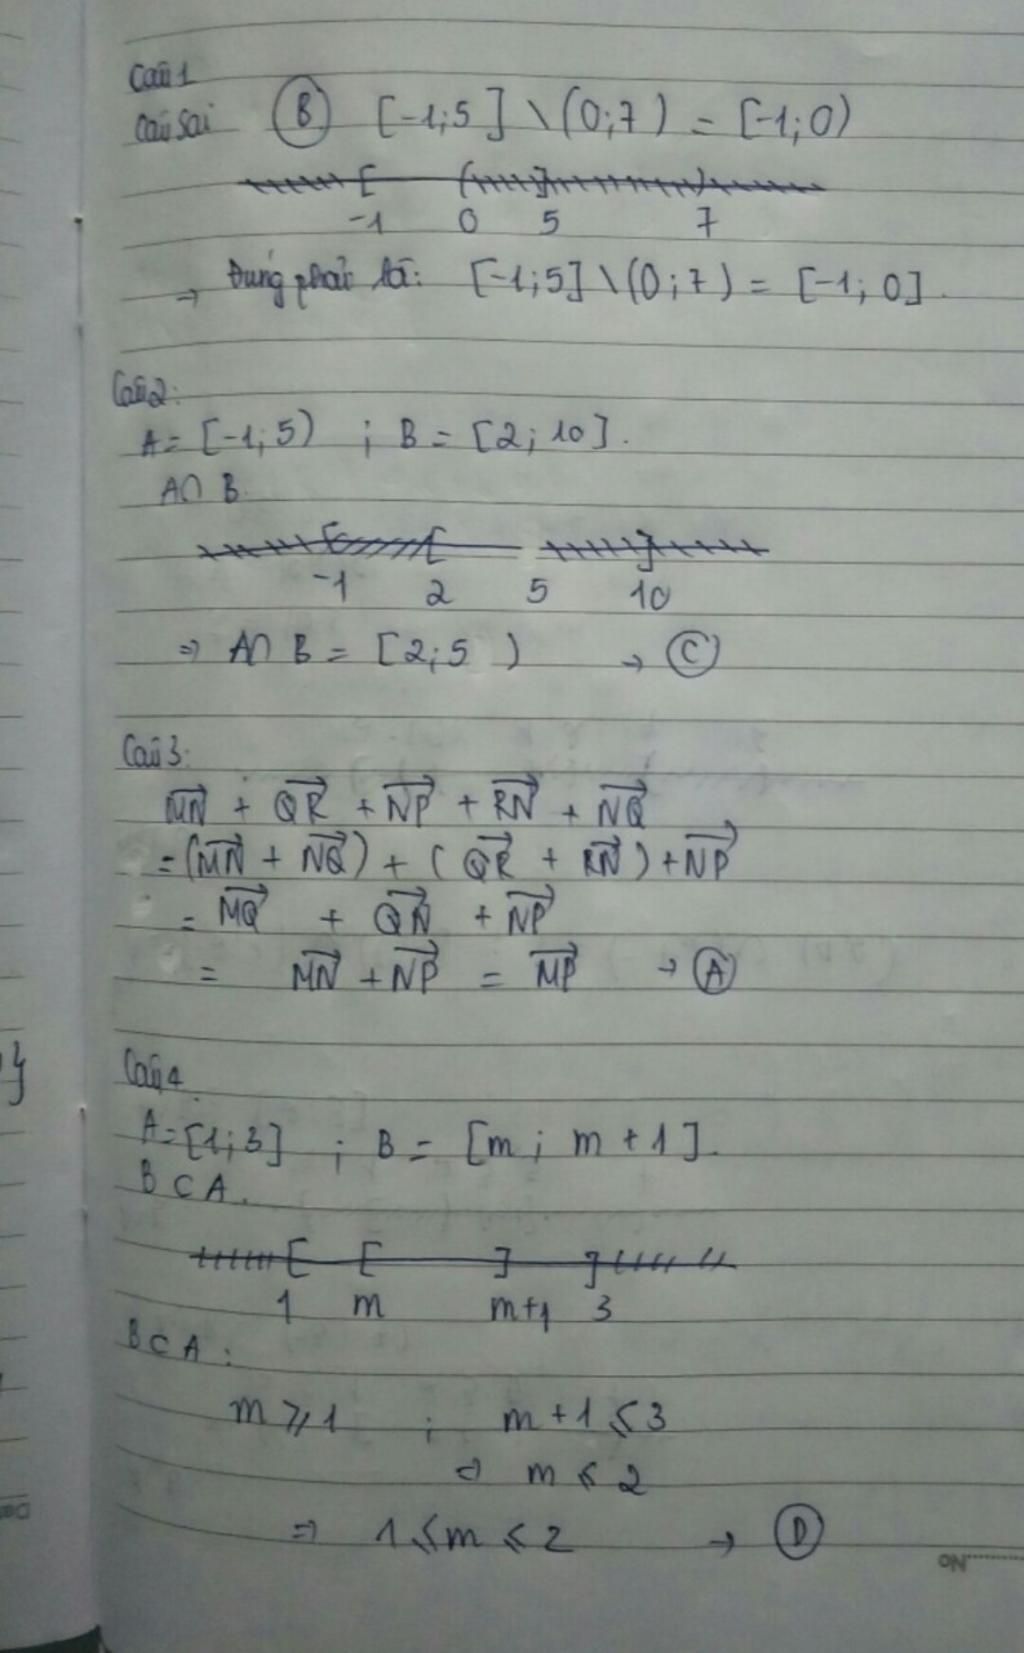 Câu 1
Câu sai (B) [-1;5] \ (0;7) = [-1;0)
-1 0 5 7
⇒ Đúng phải là: [-1;5] \ (0;7) = [-1;0].
Câu 2:
A = [-1;5) ; B = [2;10].
A∩B
-1 2 5 10
⇒ A∩B = [2;5) → (C)
Câu 3:
→MN + →QR + →NP + →RN + →NQ
= (→MN + →NQ) + (→QR + →RN) + →NP
= →MQ + →QN + →NP
= →MN + →NP = →MP → (A)
Câu 4
A = [1;3] ; B = [m; m+1].
B⊂A.
1 m m+1 3
B⊂A:
m ⩾ 1 ; m+1 ⩽ 3
⇒ m ⩽ 2
⇒ 1 ⩽ m ⩽ 2 → (D)
No